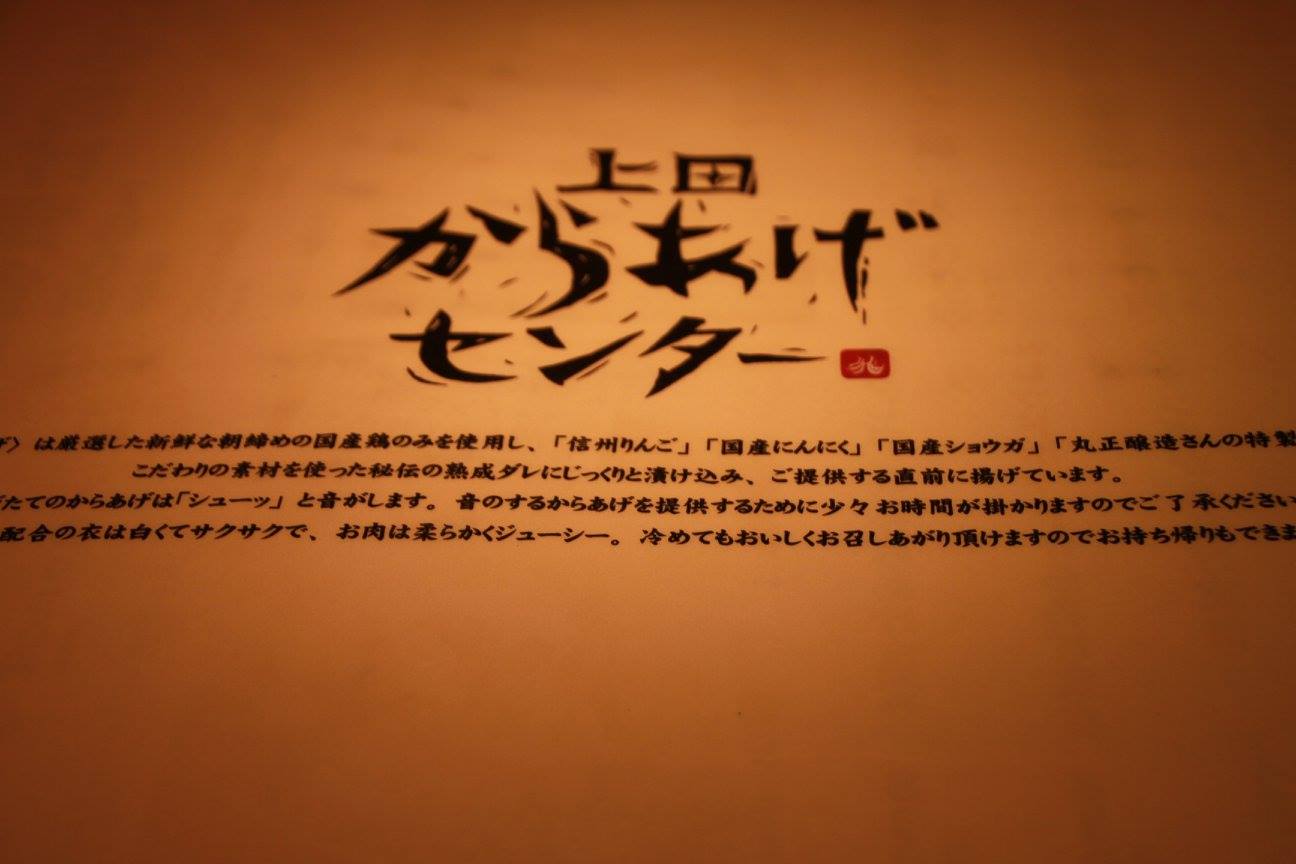 上田
からあげ
センター
は厳選した新鮮な朝締めの国産鶏のみを使用し、「信州りんご」「国産にんにく」「国産ショウガ」「丸正醸造さんの特製
こだわりの素材を使った秘伝の熟成ダレにじっくりと漬け込み、ご提供する直前に揚げています。
たてのからあげは「シューッ」と音がします。音のするからあげを提供するために少々お時間が掛かりますのでご了承ください
配合の衣は白くてサクサクで、お肉は柔らかくジューシー。冷めてもおいしくお召しあがり頂けますのでお持ち帰りもできま